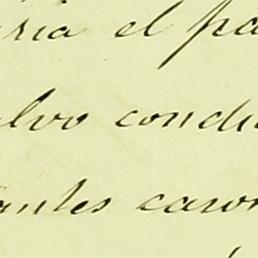 ria el pa
lvo condu
antes caron